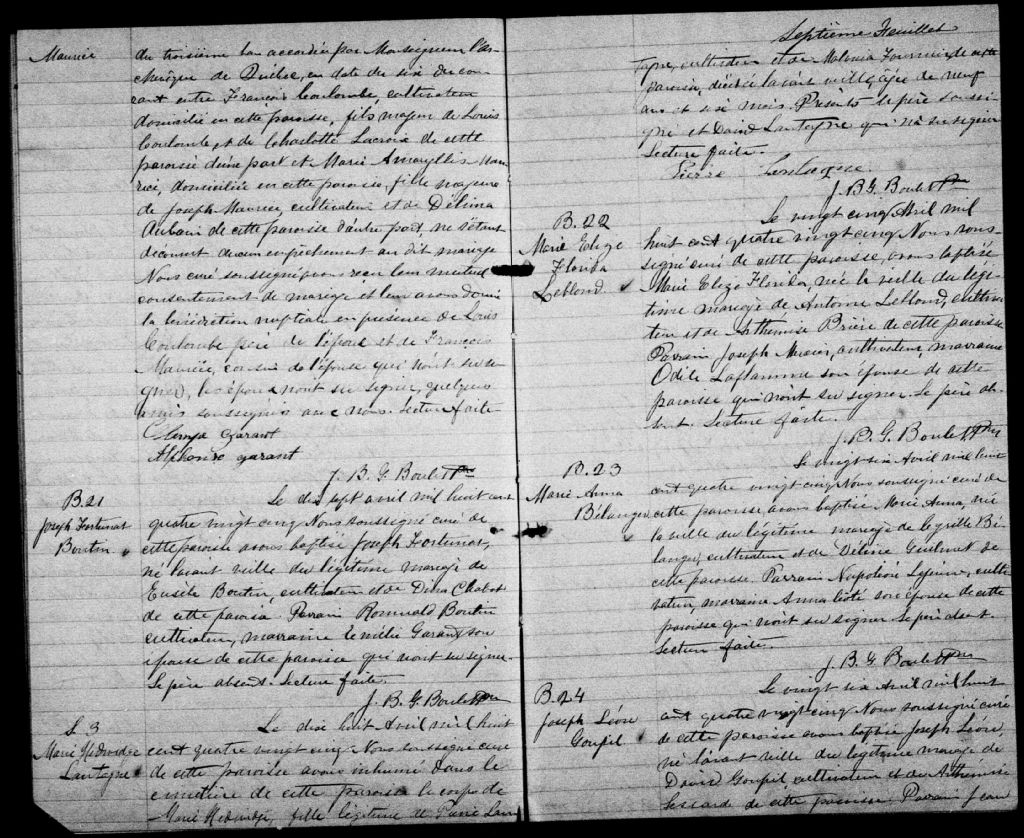 Maurice
du troisième ban accordée par Monseigneur l'ar-
chevêque de Québec, en date du six du cou-
rant entre François Coulombe, cultivateur
domicilié en cette paroisse, fils majeur de Louis
Coulombe et de Charlotte Lacroix de cette
paroisse d'une part et Marie Amaryllis Mau-
rice, domiciliée en cette paroisse, fille majeure
de Joseph Maurice, cultivateur et de Délima
Aubain de cette paroisse d'autre part, ne s'étant
découvert aucun empêchement au dit mariage
Nous curé soussigné avons reçu leur mutuel
consentement de mariage et leur avons donné
la bénédiction nuptiale en présence de Louis
Coulombe père de l'époux et de François
Maurice, cousin de l'épouse qui n'ont su si-
gner, les époux n'ont su signer, quelques
amis soussignés avec nous. Lecture faite
Garant
Alphonse Garant
J. B. G. Boulet Ptre
B.21
Joseph Fortunat
Boutin
Le dix sept avril mil huit cent
quatre vingt cinq Nous soussigné curé de
cette paroisse avons baptisé Joseph Fortunat,
né l'avant veille du légitime mariage de
Eusèbe Boutin, cultivateur et de Dina Chabot
de cette paroisse Parrain Romuald Boutin
cultivateur, marraine Emélie Garant son
épouse de cette paroisse qui n'ont su signer.
Le père absent. Lecture faite.
J. B. G. Boulet Ptre
S. 3
Marie Hedwidge
Lantagne
Le dix huit Avril mil huit
cent quatre vingt cinq Nous soussigné curé
de cette paroisse avons inhumé dans le
cimetière de cette paroisse le corps de
Marie Hedwidge, fille légitime de Pierre Lan
Septième Feuillet
tagne, cultivateur et de Malvina Fournier de cette
paroisse, décédée l'avant veille, âgée de neuf
ans et six mois. Présents le père soussi-
gné et David Lantagne qui n'a su signer
Lecture faite.
Pierre Lantagne
J. B. G. Boulet Ptre
B.22
Marie Elize
Florida
Leblond
Le vingt cinq Avril mil
huit cent quatre vingt cinq Nous sous-
signé curé de cette paroisse avons baptisé
Marie Elize Florida, née la veille du légi-
time mariage de Antoine Leblond, cultiva-
teur et de Arthémise Brière de cette paroisse
Parrain Joseph Mercier, cultivateur, marraine
Odile Laflamme son épouse de cette
paroisse qui n'ont su signer. Le père ab-
sent. Lecture faite.
J. B. G. Boulet Ptre
B.23
Marie Anna
Bélanger
Le vingt six Avril mil huit
cent quatre vingt cinq Nous soussigné curé de
cette paroisse avons baptisé Marie Anna, née
la veille du légitime mariage de Cyrille Bé-
langer, cultivateur et de Délina de
cette paroisse. Parrain Napoléon cultiva-
teur, marraine Anna son épouse de cette
paroisse qui n'ont su signer Le père absent.
Lecture faite.
J. B. G. Boulet Ptre
B.24
Joseph Léon
Goupil
Le vingt six Avril mil huit
cent quatre vingt cinq Nous soussigné curé
de cette paroisse avons baptisé Joseph Léon,
né l'avant veille du légitime mariage de
David Goupil, cultivateur et de Arthémise
Lessard de cette paroisse Parrain Jean